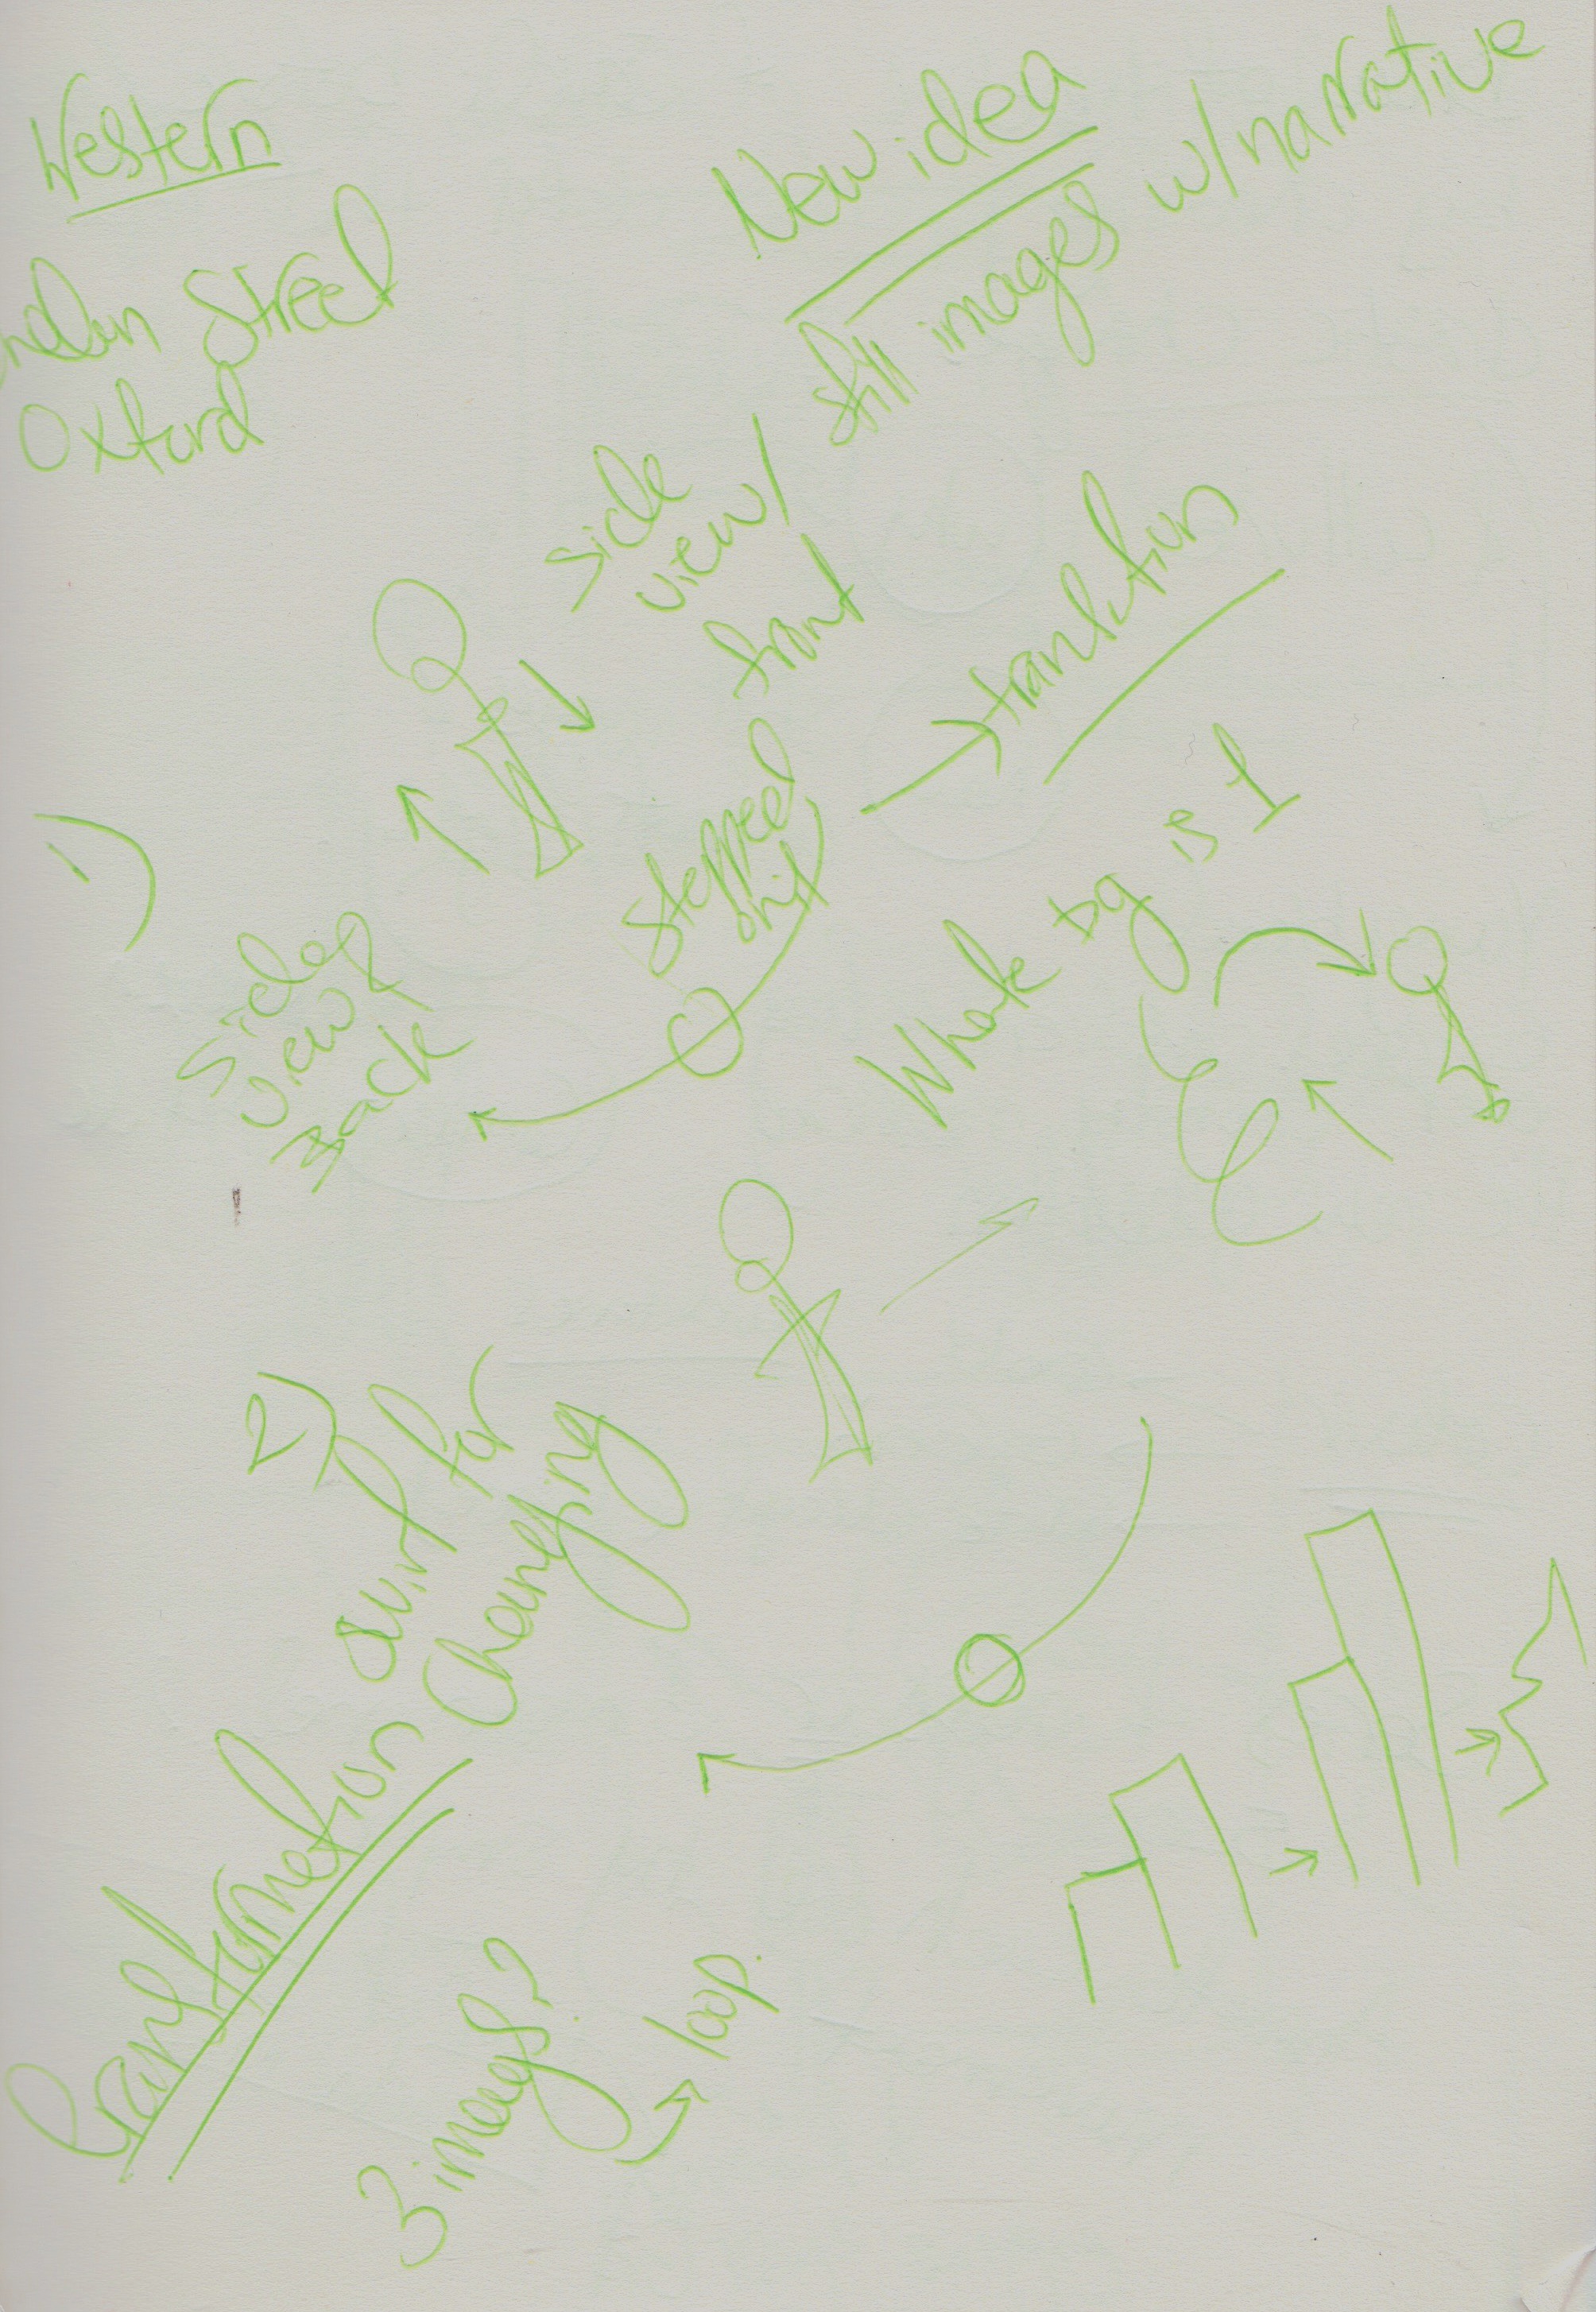 Western
ndon Street
Oxford
New idea
still images w/ narrative
side
view/
front
1)
side
view
Back
is 1
2)
for
Changing
transformation
3 images?
loop.